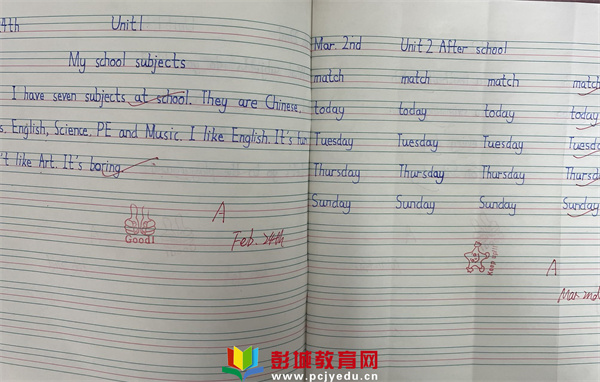 4th Unit 1
My school subjects
I have seven subjects at school. They are Chinese,
s, English, Science, PE and Music. I like English. It's fun
't like Art. It's boring.
Good!
A
Feb. 24th
Mar. 2nd Unit 2 After school
match match match match
today today today today
Tuesday Tuesday Tuesday Tuesday
Thursday Thursday Thursday Thursd
Sunday Sunday Sunday Sunday
Keep up!
A
Mar. 2nd
彭城教育网
www.pcjyedu.cn